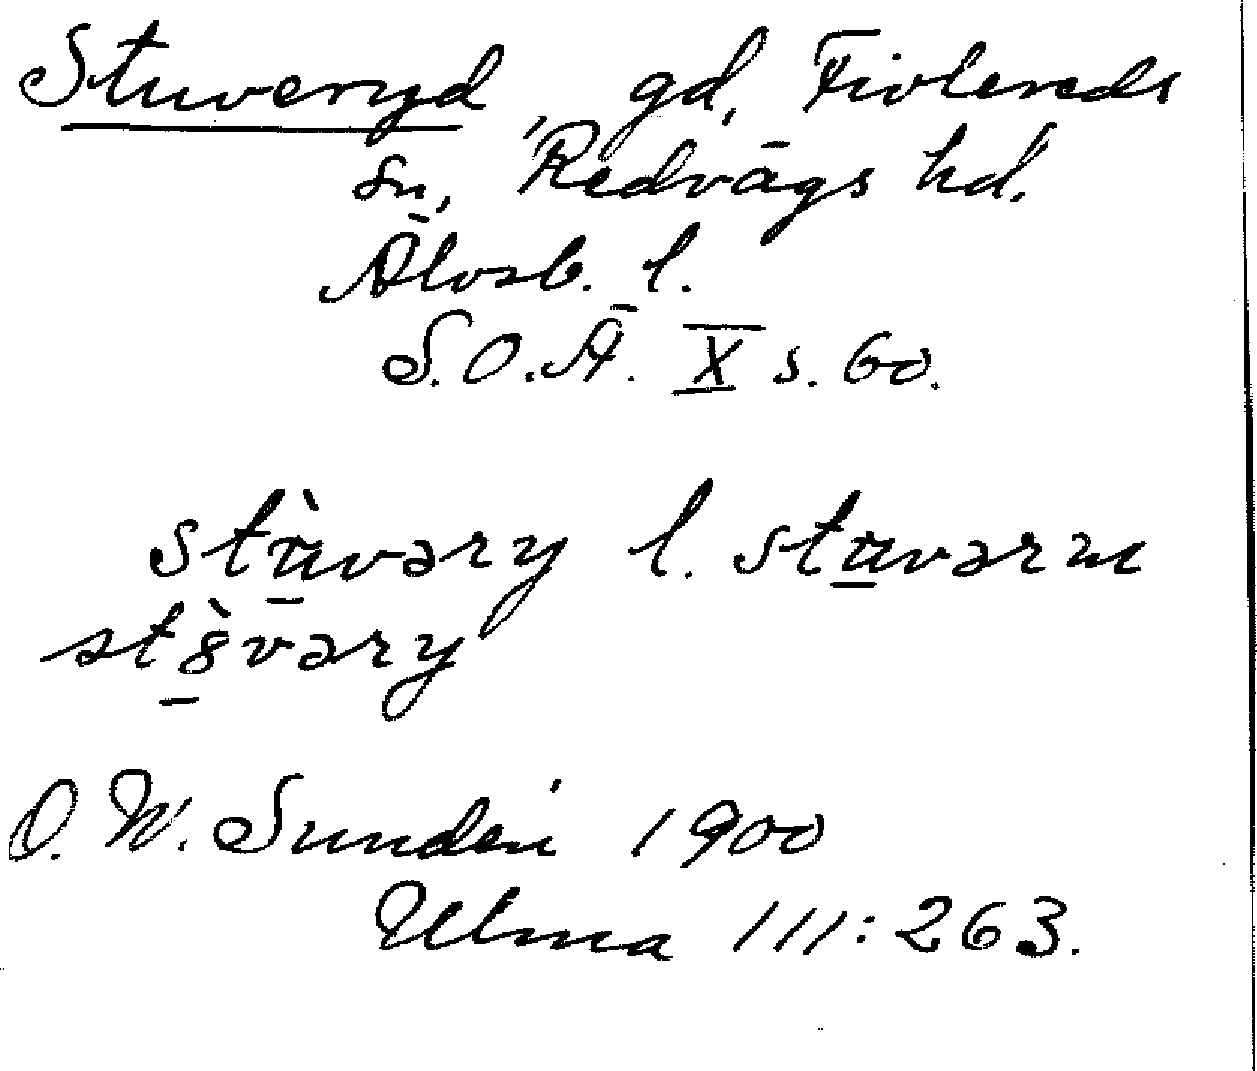 Stuveryd, gd, Fivlereds
sn, Redvägs hd.
Älvsb. l.
S.O.Ä. X s. 60.
stu̱̇̀vəry l. stu̱vərm
stə̱̀vəry
O. W. Sundén 1900
Ulma 111:263.